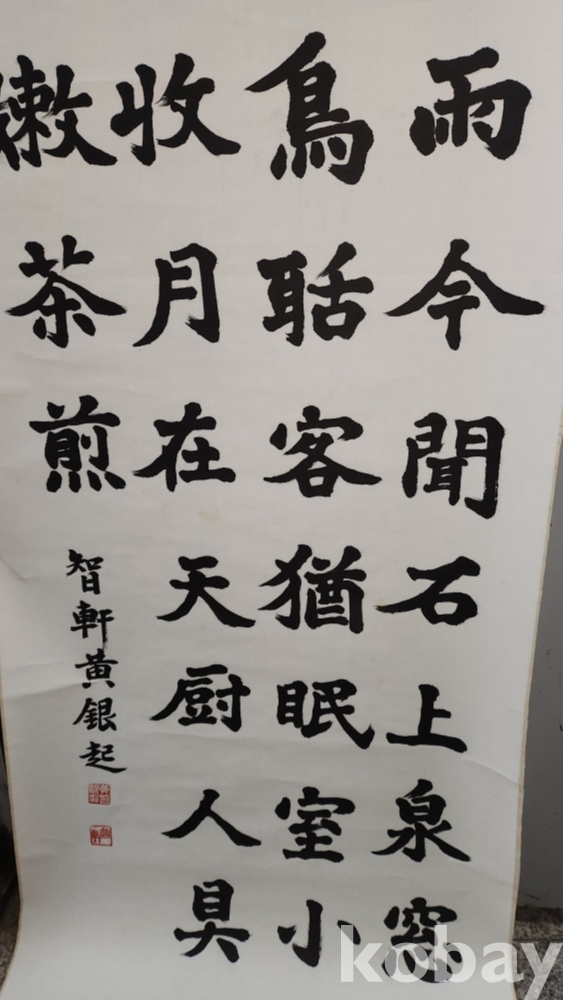 雨今聞石上泉窓
鳥聒客猶眠室小
收月在天厨人具
嫩茶煎
智軒黃銀起
kobay